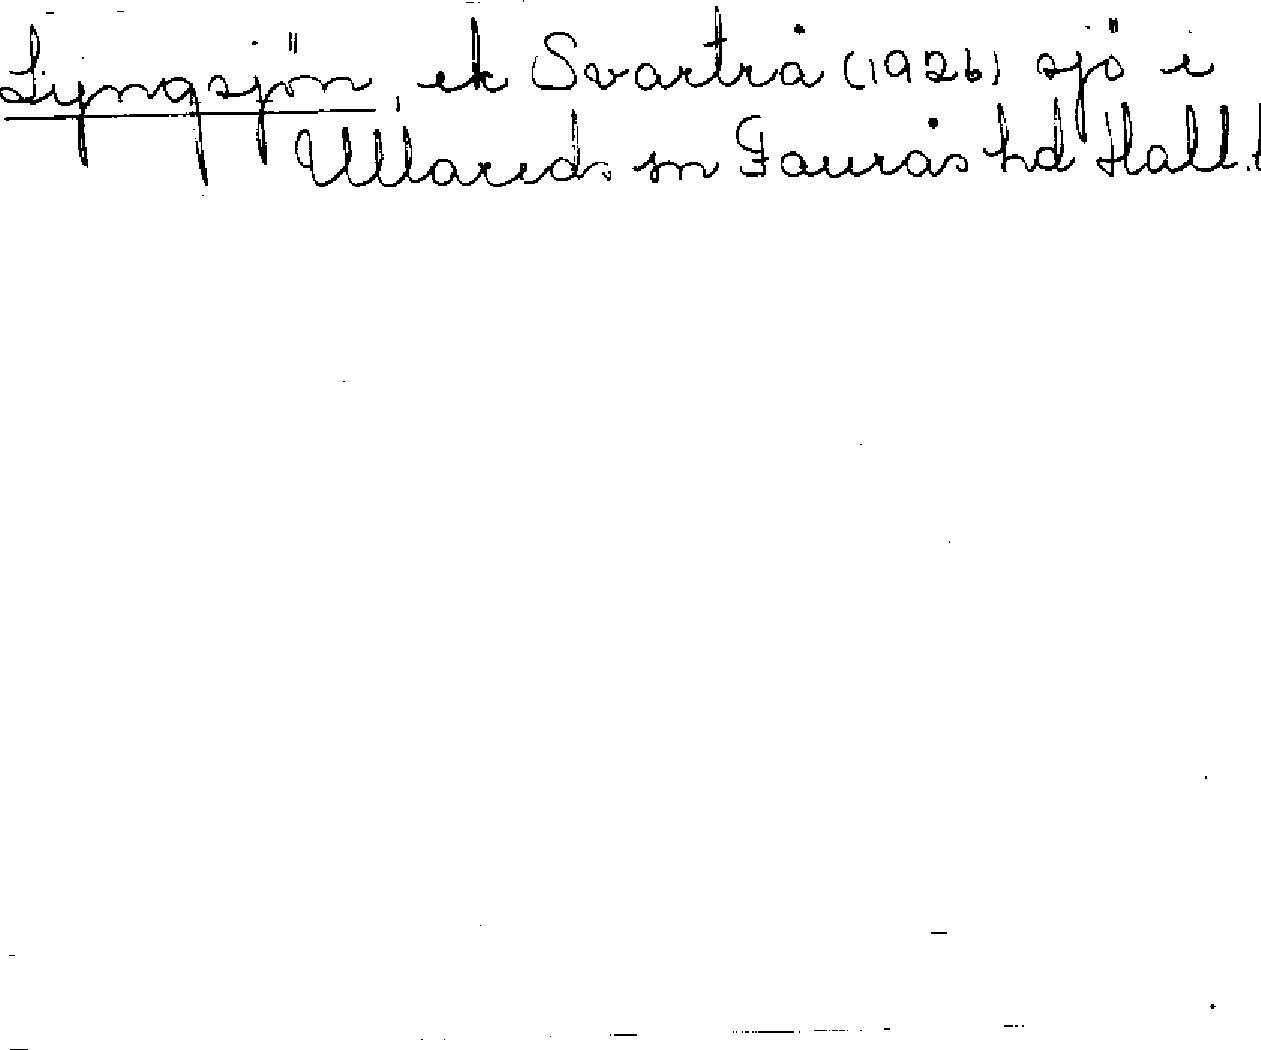 Ljyngsjön, ek Svartrå (1926) sjö i
Ullareds sn Faurås hd Hall.l